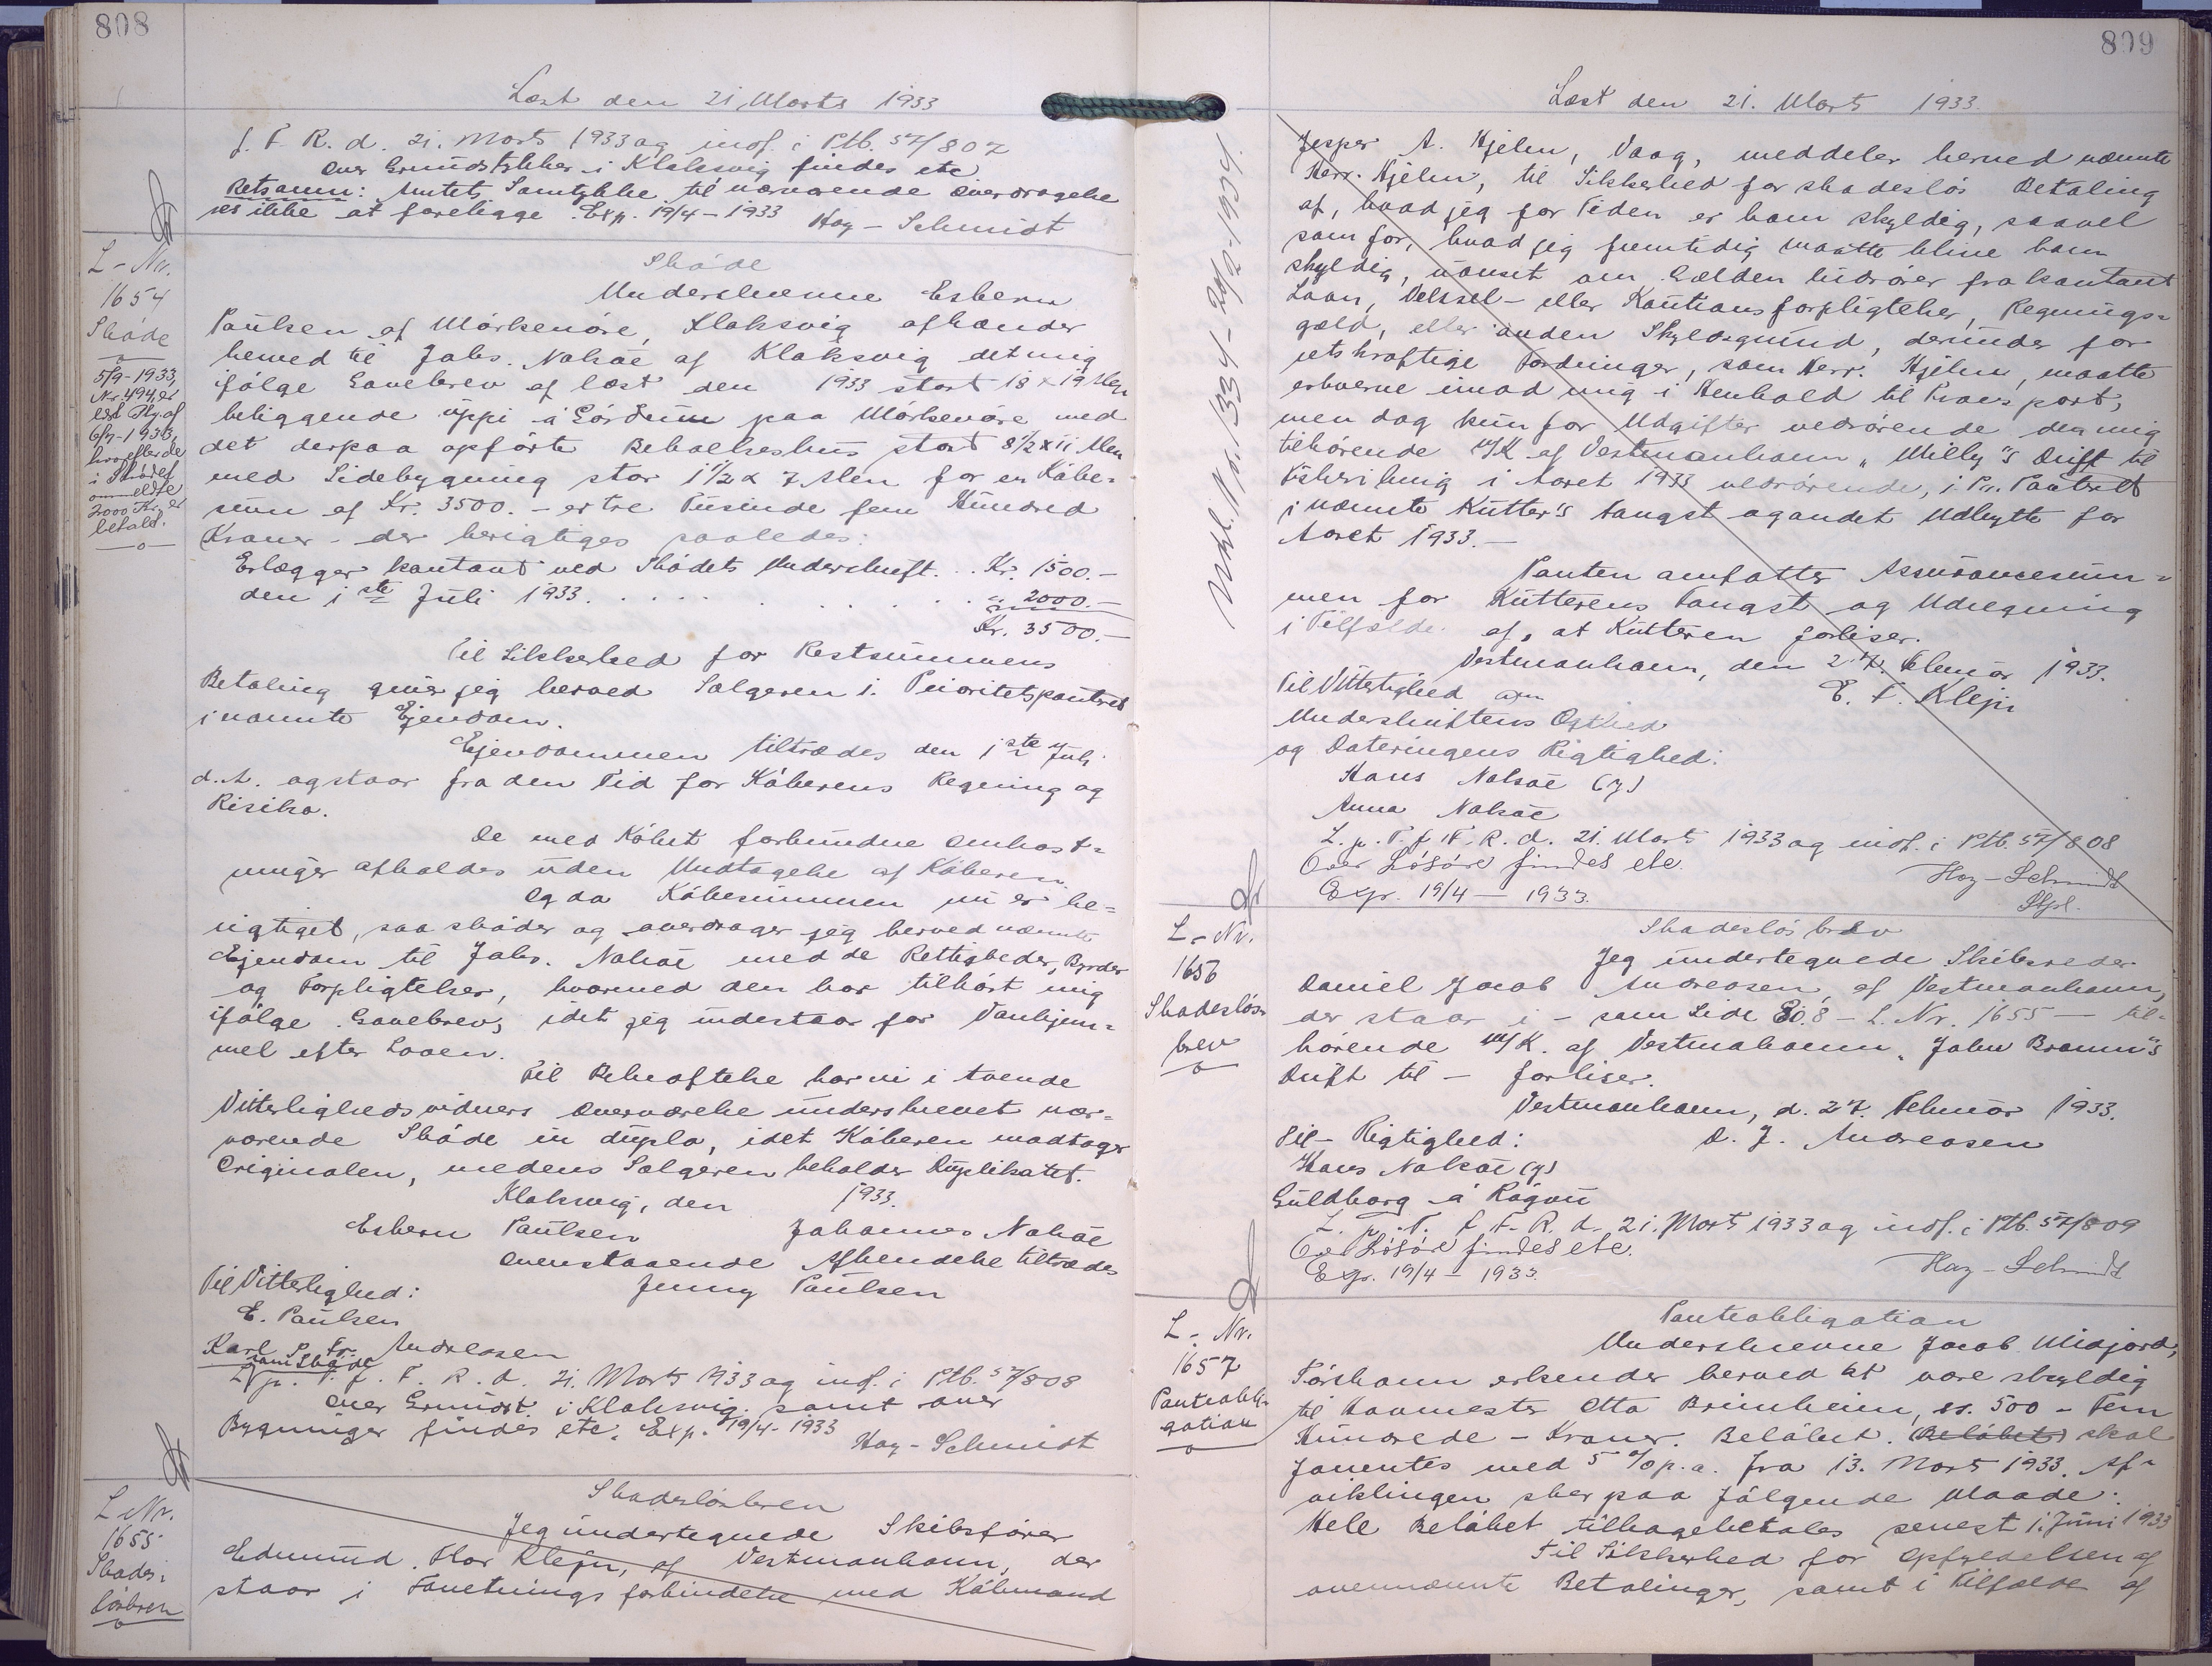 808
Læst den 21. Marts 1933
f. F. R. d. 21. Marts 1933 og indf. i Ptb. 57/807
Over Grundstykker i Klaksvig findes etc
Retsanm: Amtets Samtykke til nærværende Overdragelse
ses ikke at foreligge. Exp. 19/4 - 1933 Hoy - Schmidt
L - Nr.
1654
Skøde
5/9 - 1933,
Nr. 494, er
hvorefter de
i Skødet
ommeldte
2000 Kr. er
betalt.
Skøde
Underskrevne Esbern
Paulsen af Mørkenøre, Klaksvig afhænder
herved til Johs. Nolsøe af Klaksvig det mig
ifølge Gavebrev af læst den 1933 stort 18 x 19 Alen
beliggende uppi á Gørdum paa Mørkenøre med
det derpaa opførte Beboelseshus stort 8 1/2 x 11 Alen
med Sidebygning stor 1 1/2 x 7 Alen for en Købe-
sum af Kr. 3500. - er tre Tusinde fem Hundred
Kroner - der berigtiges saaledes:
Erlægger kontant ved Skødets Underskrift... Kr. 1500.-
den 1ste Juli 1933. . . . . . . . . " 2000.-
Kr. 3500.-
Til Sikkerhed for Restsummens
Betaling giver jeg herved Sælgeren 1. Prioritetspanteret
i nævnte Ejendom.
Ejendommen tiltrædes den 1ste Juli
d. A. og staar fra den Tid for Køberens Regning og
Risiko.
De med Købet forbundne Omkost-
ninger afholdes uden Undtagelse af Køberen.
Og da Købesummen nu er be-
rigtiget, saa skøder og overdrager jeg herved nævnte
Ejendom til Johs. Nolsøe med de Rettigheder, Byrder
og Forpligtelser, hvormed den har tilhørt mig
ifølge Gavebrev, idet jeg indestaar for Vanhjem-
mel efter Loven.
Til Bekræftelse har vi i tvende
Vitterlighedsvidners Overværelse underskrevet nær-
værende Skøde in duplo, idet Køberen modtager
Originalen, medens Sælgeren beholder Duplikatet.
Klaksvig, den 1933.
Esbern Paulsen Johannes Nolsøe
Ovenstaaende Afhændelse tiltrædes
Til Vitterlighed: Jenny Paulsen
E. Paulsen
Karl P. Fr. Andreasen
som Skøde
L. p. T. f. F. R. d. 21. Marts 1933 og indf. i Ptb. 57/808
Over Grundst. i Klaksvig samt over
Bygninger findes etc. Exp. 19/4 - 1933
Hoy - Schmidt
L. Nr.
1655
Skades-
løsbrev
Skadesløsbrev
Jeg undertegnede Skibsfører
Edmund Klejn, af Vestmanhavn, der
staar i Forretningsforbindelse med Købmand
809
Læst den 21. Marts 1933.
Jesper A. Hjelm, Vaag, meddeler herved nævnte
Herr. Hjelm, til Sikkerhed for skadesløs Betaling
af, hvad jeg for Tiden er ham skyldig, saavel
som for, hvad jeg fremtidig maatte blive ham
skyldig, uanset om Gælden hidrører fra kontant
Laan, Veksel- eller Kautionsforpligtelser, Regnings-
gæld, eller anden Skyldsgrund, derunder for
retskraftige Fordringer, som Herr. Hjelm, maatte
erhverve imod mig i Henhold til Transport,
men dog kun for Udgifter vedrørende den mig
tilhørende M/K af Vestmanhavn "Milly"s Drift til
Fiskeri i Aaret 1933 vedrørende, 1. Pr. Panteret
i nævnte Kutter's Fangst og andet Udbytte for
Aaret 1933.-
Panten omfatter Assurancesum-
men for Kutterens Fangst og Udregning
i Tilfælde af, at Kutteren forliser.
Vestmanhavn, den 27. Februar 1933.
Til Vitterlighed om E. F. Klejn
Underskriftens Ægthed
og Dateringens Rigtighed:
Hans Nolsøe (y)
Anna Nolsøe
L. p. T. f. F. R. d. 21. Marts 1933 og indf. i Ptb. 57/808
Over Løsøre findes etc.
Exp. 19/4 - 1933. Hoy - Schmidt
L - Nr.
1656
Skadesløs-
brev
Skadesløsbrev
Jeg undertegnede Skibsreder
Daniel Jacob Andreasen, af Vestmanhavn,
der staar i - som Side 808 - L. Nr. 1655 - til-
hørende M/K. af Vestmahavn "John Bramm"s
Drift til - forliser.
Vestmanhavn, d. 27. Februar 1933.
Til - Rigtighed: D. J. Andreasen
Hans Nolsøe (y)
Guldborg á Rógvu
L. p. T. f. F. R. d. 21. Marts 1933 og indf. i Ptb. 57/809
Over Løsøre findes etc.
Exp. 19/4 - 1933. Hoy - Schmidt
L - Nr.
1657
Panteobli-
gation
Panteobligation
Underskrevne Jacob Midjord,
Tórshavn erkender herved at være skyldig
til Havnemester Otto Brimheim, kr. 500 - Fem
Hundrede - Kroner. Beløbet. (Beløbet) skal
forrentes med 5 % p. a. fra 13. Marts 1933. Af-
viklingen sker paa følgende Maade:
Hele Beløbet tilbagebetales senest 1. Juni 1933
Til Sikkerhed for Opfyldelsen af
ovennævnte Betalinger, samt i Tilfælde af